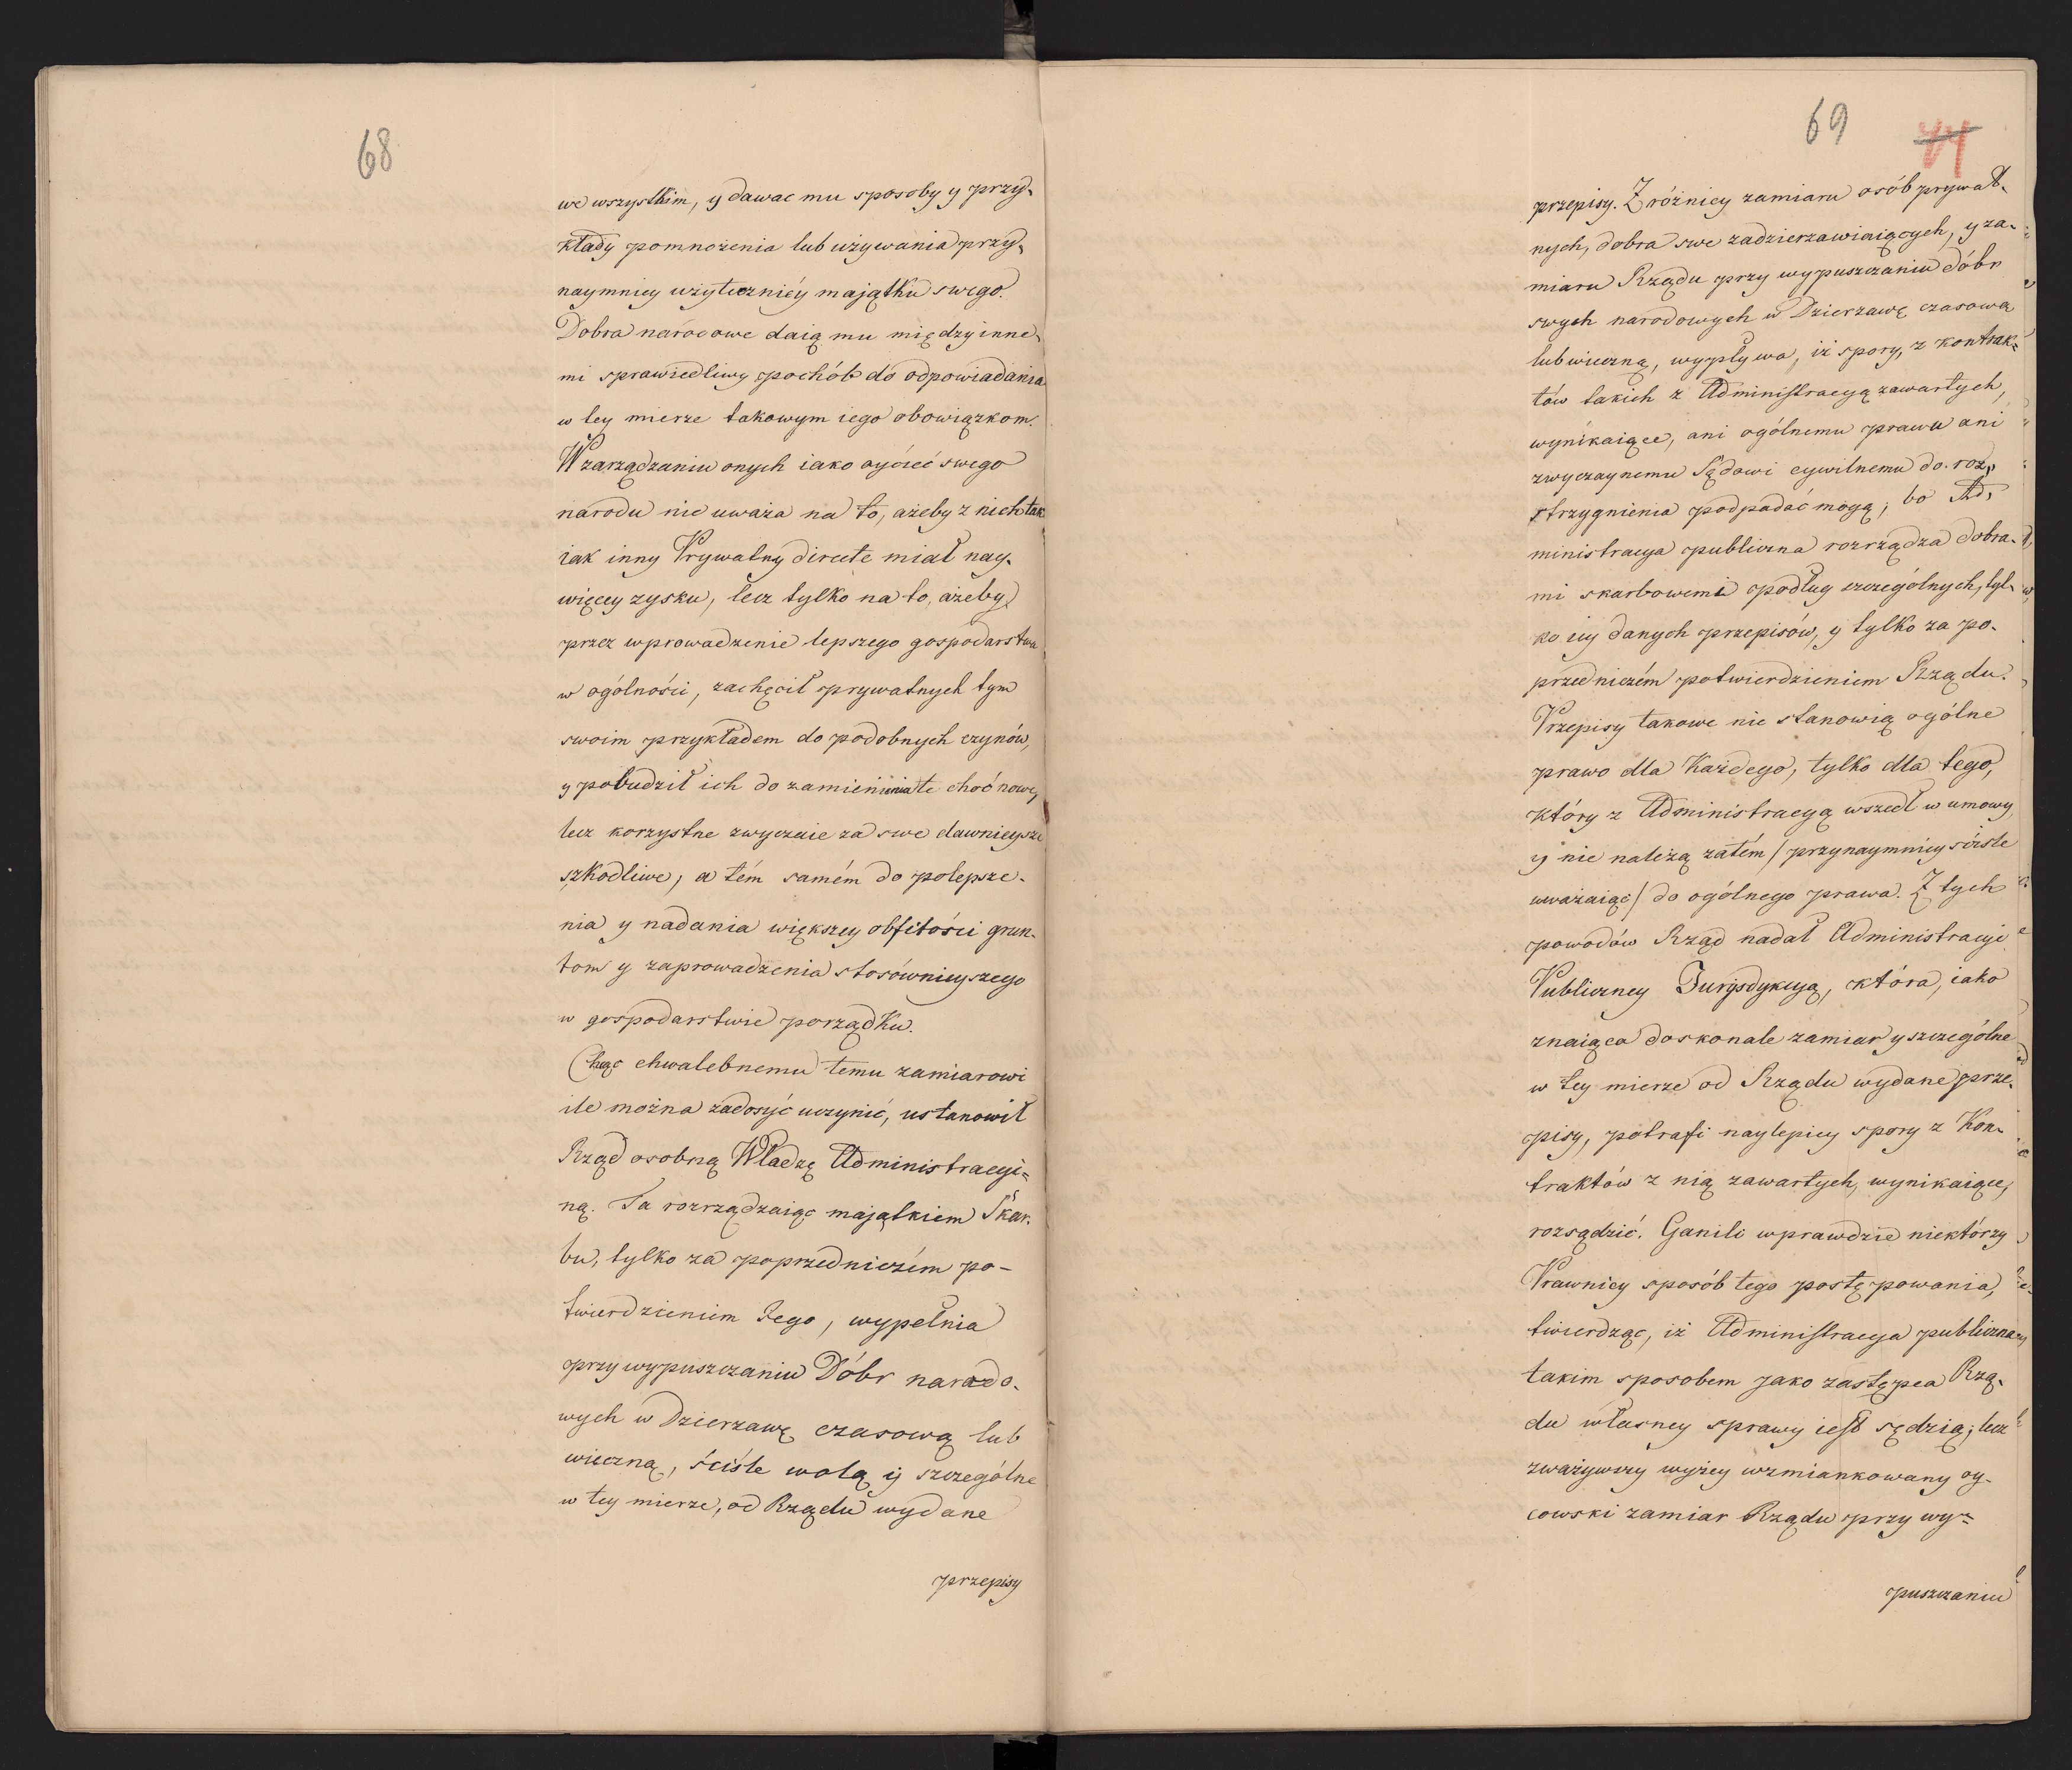 68
we wszystkim, y dawac mu sposoby y przy-
kłady pomnożenia lub używania przy-
naymniey użyteczniéy majątku swego.
Dobra narodowe daią mu między inne-
mi sprawiedliwy pochób do odpowiadania
w tey mierze takowym iego obowiązkom.
W zarządzaniu onych iako oyciec swego
narodu nie uważa na to, ażeby z nich tak
iak inny Prywatny directe miał nay-
więcey zysku, lecz tylko na to, ażeby
przez wprowadzenie lepszego gospodarstwa
w ogólności, zachęcił prywatnych tym
swoim przykładem do podobnych czynów,
y pobudził ich do zamienienia te choć nowe,
lecz korzystne zwyczaie za swe dawnieysze
szkodliwe, a tém samém do polepsze-
nia y nadania większey obfitości grun-
tom y zaprowadzenia stosównieyszego
w gospodarstwie porządku.
Chcąc chwalebnemu temu zamiarowi
ile można zadosyć uczynić, ustanowił
Rząd osobną Władzę Administracyi=
ną. Ta rozrządzaiąc majątkiem Skar-
bu, tylko za poprzedniczém po-
twierdzieniem Jego, wypełnia
przy wypuszczaniu Dóbr narodo-
wych w Dzierzawę czasową lub
wieczną, ściśle wolą y szczególne
w tey mierze, od Rządu wydane
przepisy
69
przepisy. Z różnicy zamiaru osób prywat-
nych, dobra swe zadzierzawiaiących, y za-
miaru Rządu przy wypuszczaniu dóbr
swych narodowych w Dzierzawę czasową
lub wieczną, wypływa, iż spory, z kontrak=
tów takich z Administracyą zawartych,
wynikaiące, ani ogólnemu prawu ani
zwyczaynemu Sądowi cywilnemu do roz-
strzygnienia podpadać mogą; bo Ad-
ministracya publiczna rozrządza dobra-
mi skarbowemi podług szczególnych, tyl-
ko iey danych przepisów, y tylko za po-
przedniczém potwierdzieniem Rządu.
Przepisy takowe nie stanowią ogólne
prawo dla Każdego, tylko dla tego,
który z Administracyą wszedł w umowy,
y nie należą zatém / przynaymniey sciśle
uważaiąc / do ogólnego prawa. Z tych
powodów Rząd nadał Administracyi
Publiczney Jurysdykcyą, która, iako
znaiąca doskonale zamiar y szczególne
w tey mierze od Rządu wydane prze-
pisy, potrafi naylepiey spory z Kon-
traktów z nią zawartych, wynikaiące,
rozsądzić. Ganili wprawdzie niektórzy
Prawnicy sposób tego postępowania,
twierdząc, iż Administracya publiczna,
takim sposobem jako zastępca Rzą-
du własney sprawy iest sędzią; lecz
zważywszy wyżey wzmiankowany oy-
cowski zamiar Rządu przy wy=
puszczaniu